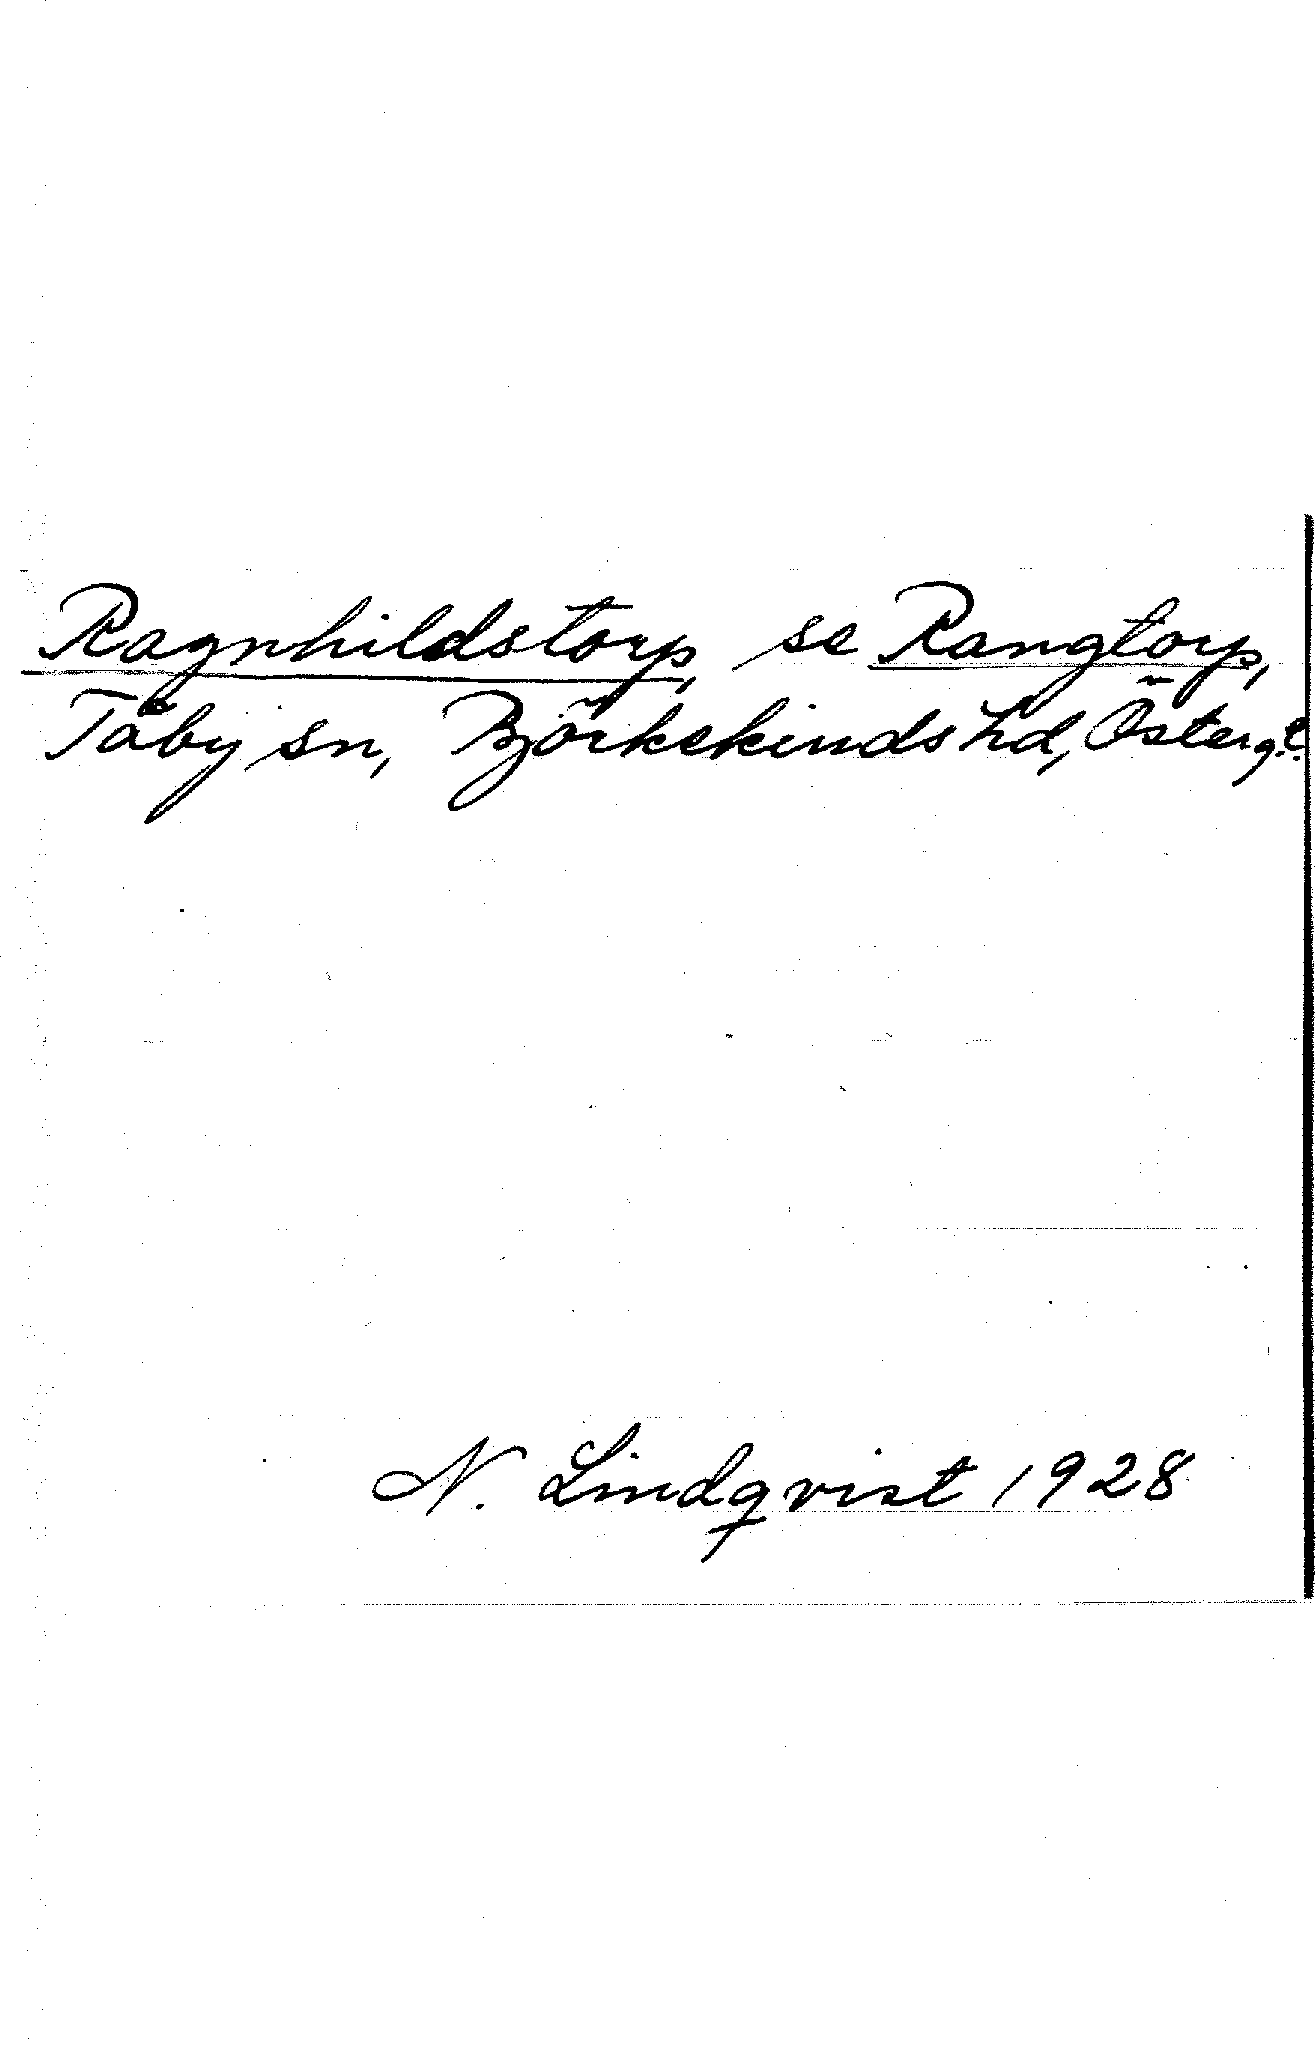 Ragnhildstorp, se Rangtorp,
Tåby sn, Björkekinds hd, Östergt.
N. Lindqvist 1928